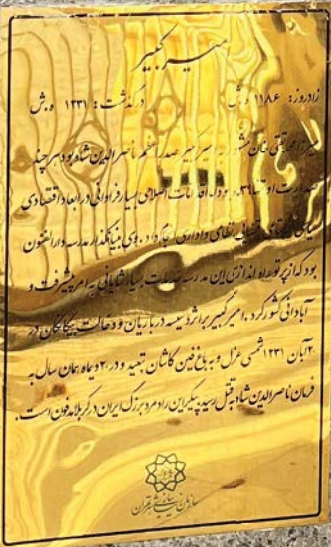 امیر کبیر
زادروز: ۱۱۸۶ ه.ش درگذشت: ۱۲۳۱ ه.ش
میرزا محمدتقی خان مشهور به امیر کبیر صدر اعظم ناصرالدین شاه بود هر چند
صدارت او ۳۹ ماه بود اما اقدامات اصلاحی بسیار فراوانی در ابعاد اقتصادی
سیاسی نظامی و اداری انجام داد. وی بنیانگذار مدرسه دارالفنون
بود که از پرتو راه اندازی این مدرسه خدمات بسیار شایانی به امر پیشرفت و
آبادانی کشور کرد. امیر کبیر بر اثر دسیسه درباریان و دخالت بیگانگان در
۲۰ آبان ۱۲۳۱ شمسی عزل و به باغ فین کاشان تبعید و در ۲۰ دیماه همان سال به
فرمان ناصرالدین شاه به قتل رسید. پیکر این رادمرد بزرگ ایران در کربلا مدفون است.
سازمان زیباسازی شهر تهران